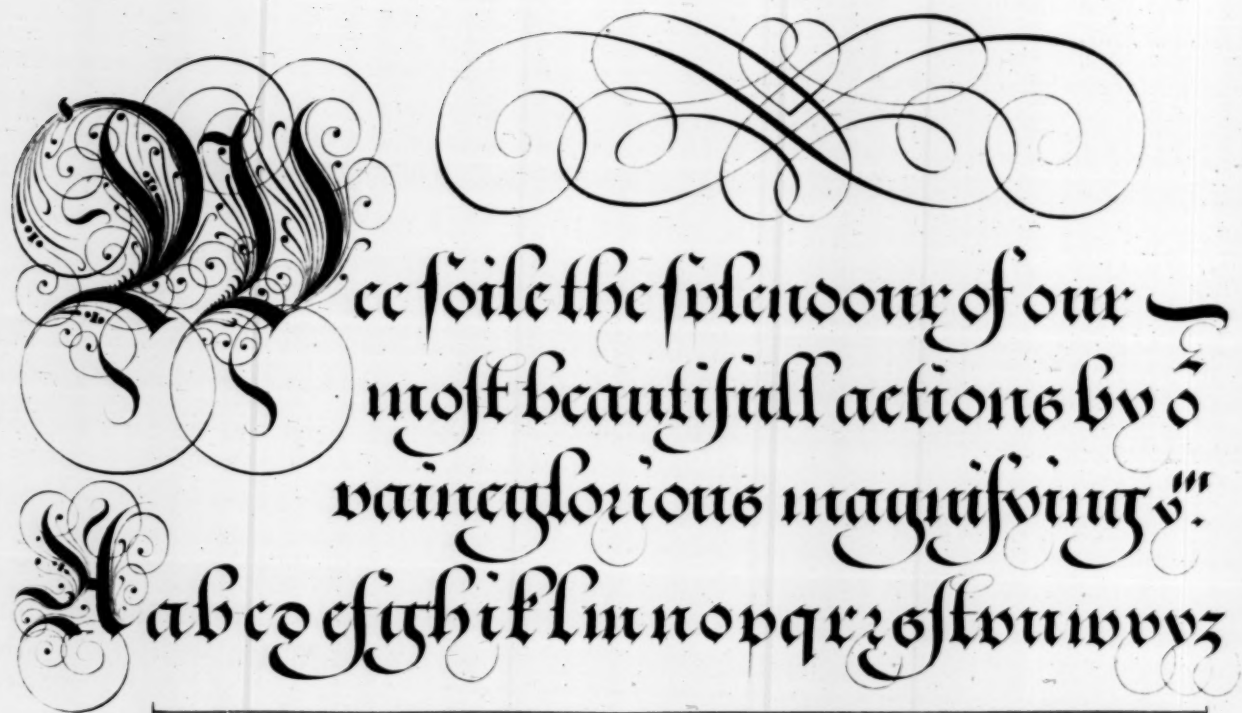 Wee ſoile the ſplendour of our
moſt beautifull actions by oʳ
vaineglorious magnifying yᵐ:
A a b c d e f g h i k l m n o p q r ꝛ s ſ t v u w x y z